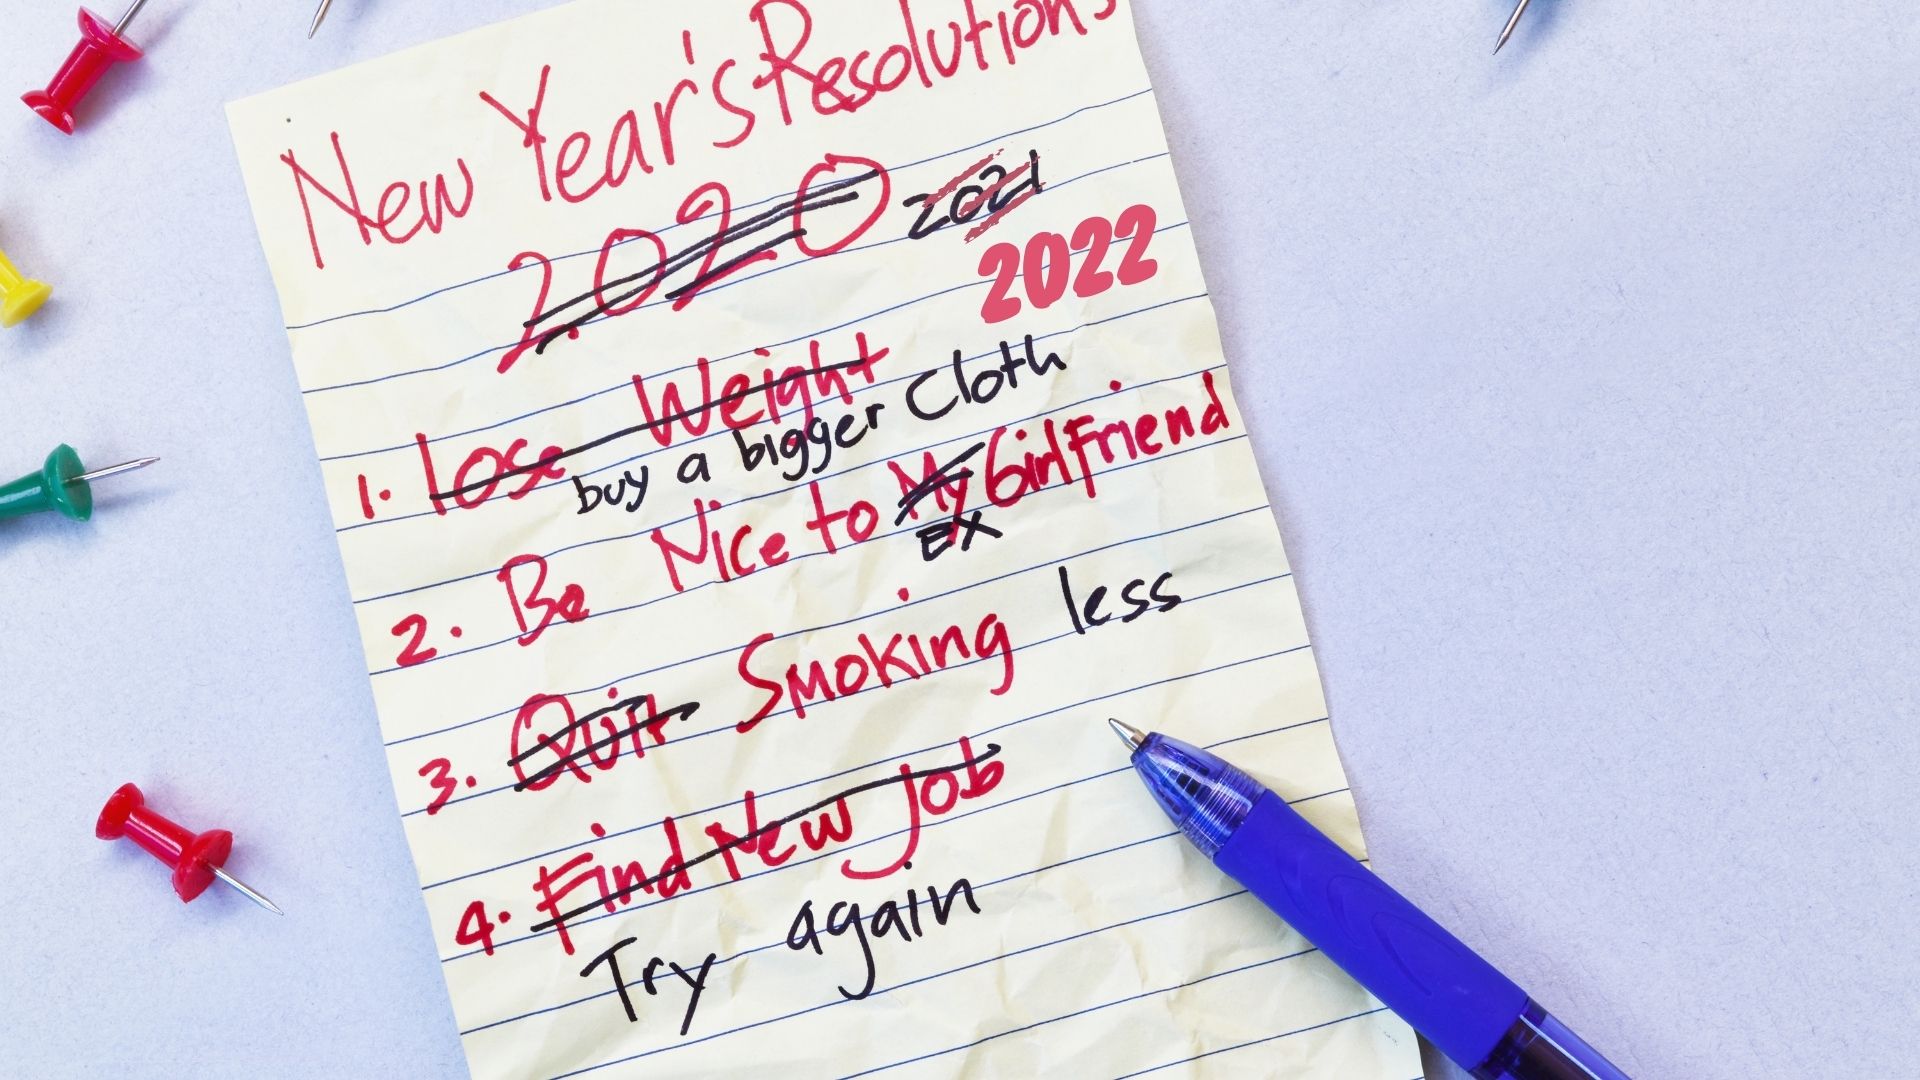 New Year's Resolutions
2020 2021
2022
1. Lose Weight
buy a bigger Cloth
2. Be Nice to My GirlFriend
EX
3. Quit Smoking less
4. Find New Job
Try again